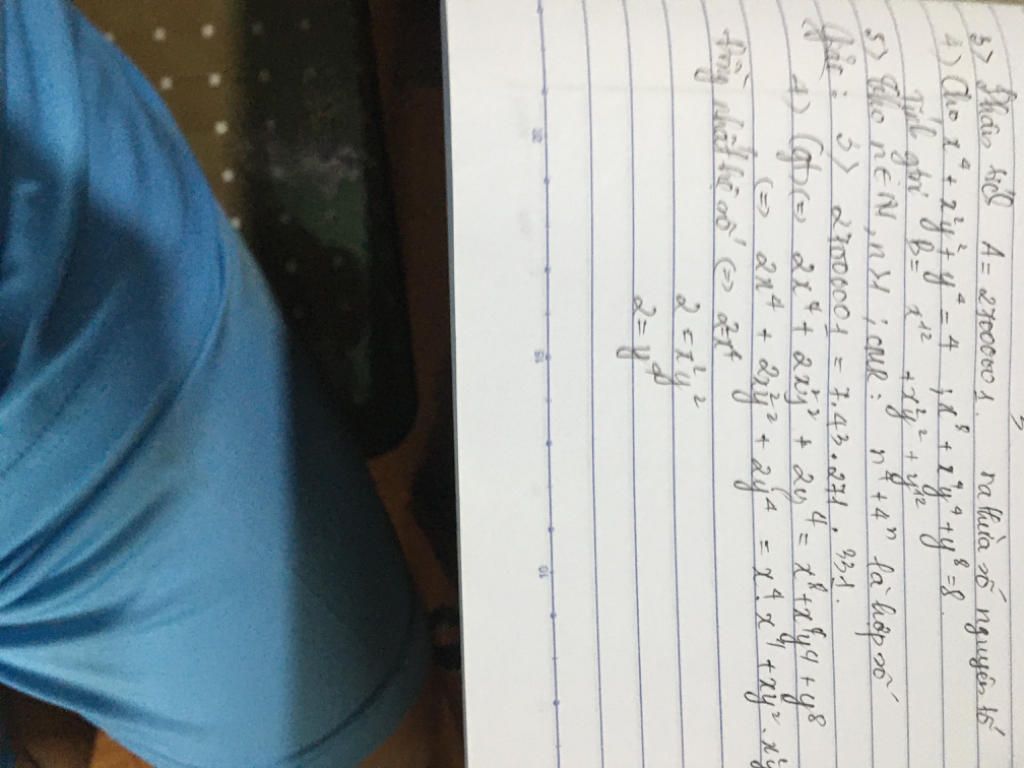 3
3) Phân tích A = 27000001 ra thừa số nguyên tố
4) Cho x⁴ + x²y² + y⁴ = 4 ; x⁸ + x⁴y⁴ + y⁸ = 8
Tính gtri B = x¹² + x²y² + y¹²
5) Cho n ∈ N, n > 1 ; CMR : n⁴ + 4ⁿ là hợp số
3) 27000001 = 7.43.271.331.
4) (gt) (=) 2x⁴ + 2x²y² + 2y⁴ = x⁸ + x⁴y⁴ + y⁸
(=) 2x⁴ + 2x²y² + 2y⁴ = x⁴.x⁴ + xy².x²y
Đồng nhất hệ số (=) 2x⁴
2 = x²y²
2 = y⁴
20
15
10